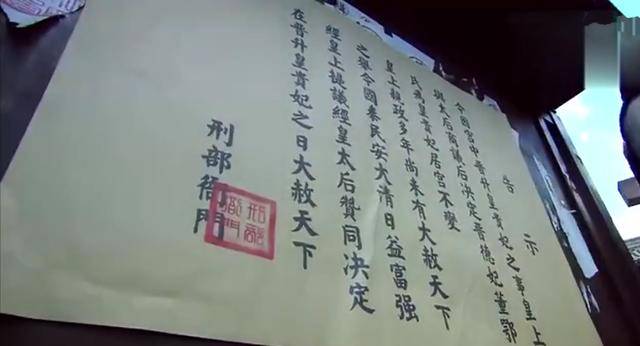 告示
今因宮中晋升皇貴妃之事皇上
與太后商議后决定晋德妃董鄂
氏爲皇貴妃居宮不變
皇上親政多年尚未有大赦天下
之舉今國泰民安大清日益富强
經皇上提議經皇太后贊同决定
在晋升皇貴妃之日大赦天下
刑部衙門